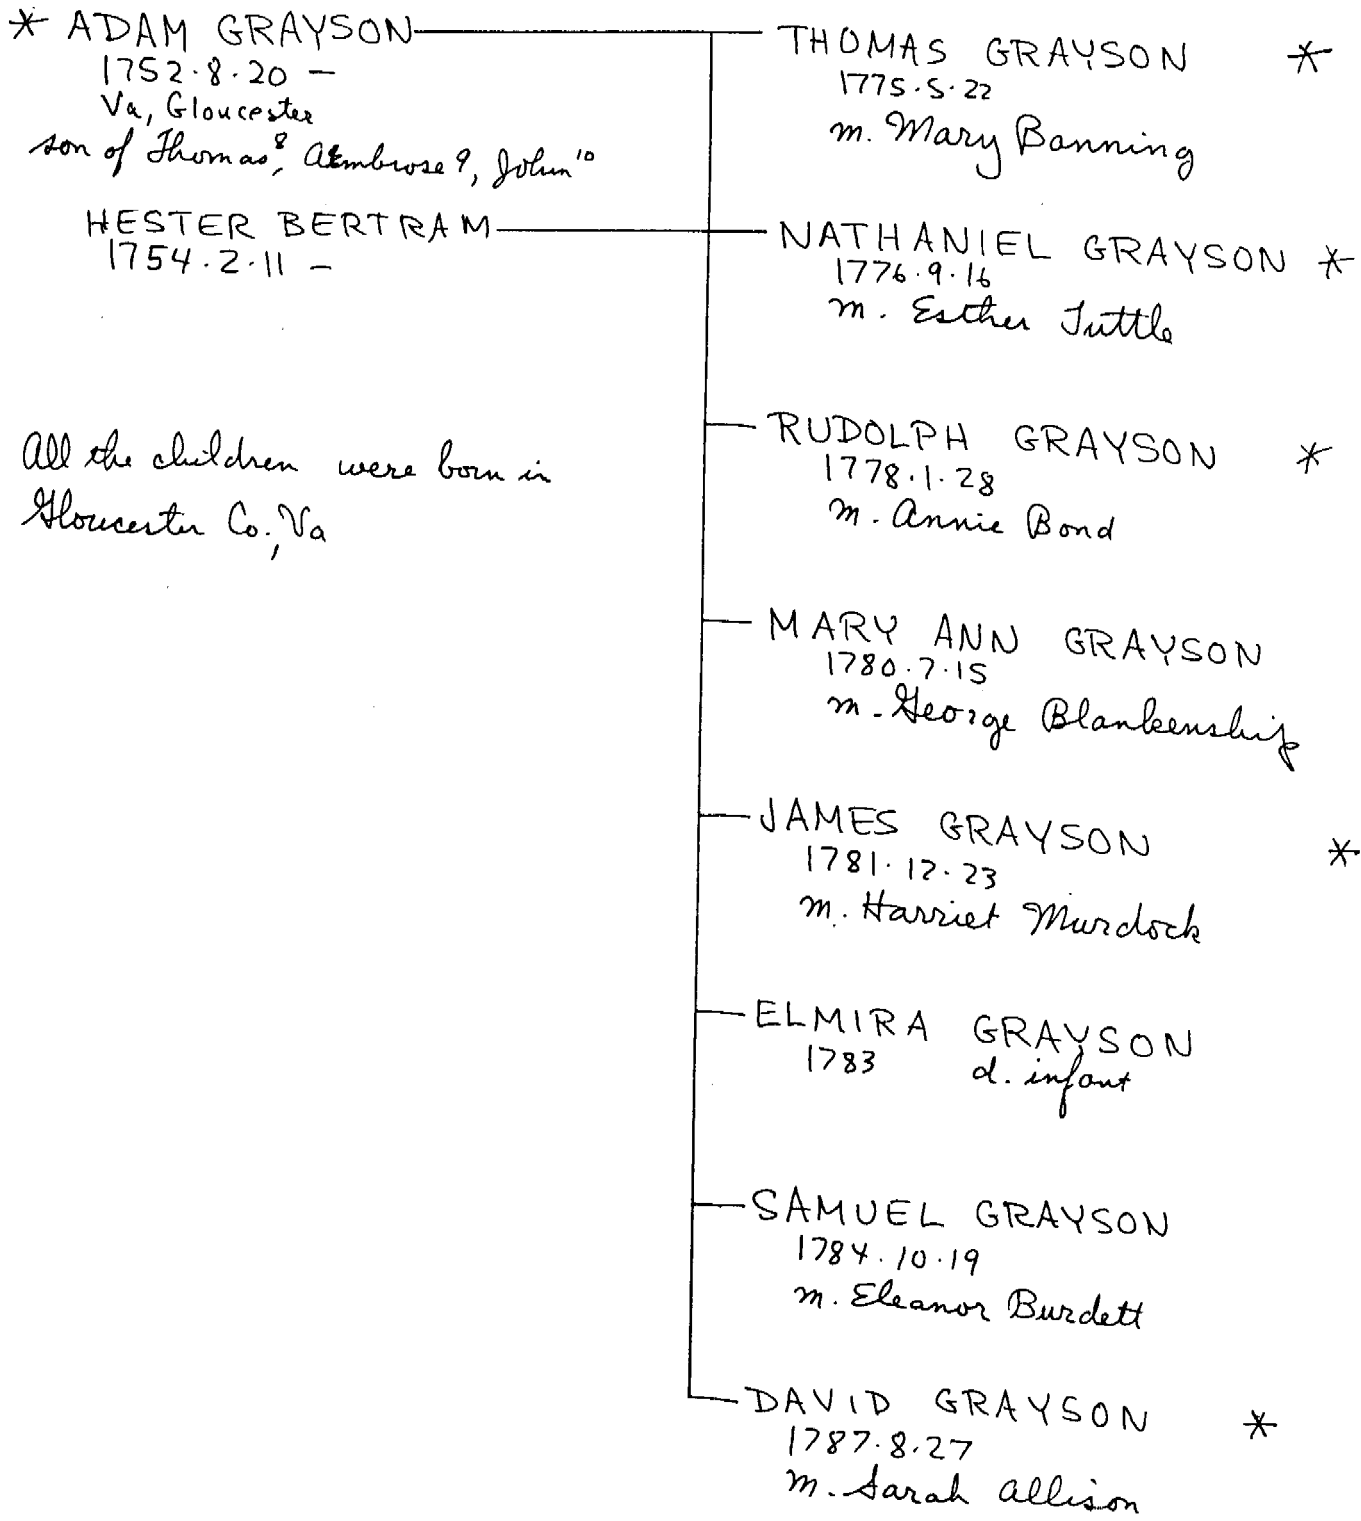 * ADAM GRAYSON
1752.8.20 –
Va, Gloucester
son of Thomas⁸, Ambrose⁹, John¹⁰
HESTER BERTRAM
1754.2.11 –
All the children were born in
Gloucester Co., Va
THOMAS GRAYSON *
1775.5.22
m. Mary Banning
NATHANIEL GRAYSON *
1776.9.16
m. Esther Tuttle
RUDOLPH GRAYSON *
1778.1.28
m. Annie Bond
MARY ANN GRAYSON
1780.7.15
m. George Blankenship
JAMES GRAYSON *
1781.12.23
m. Harriet Murdock
ELMIRA GRAYSON
1783 d. infant
SAMUEL GRAYSON
1784.10.19
m. Eleanor Burdett
DAVID GRAYSON *
1787.8.27
m. Sarah Allison